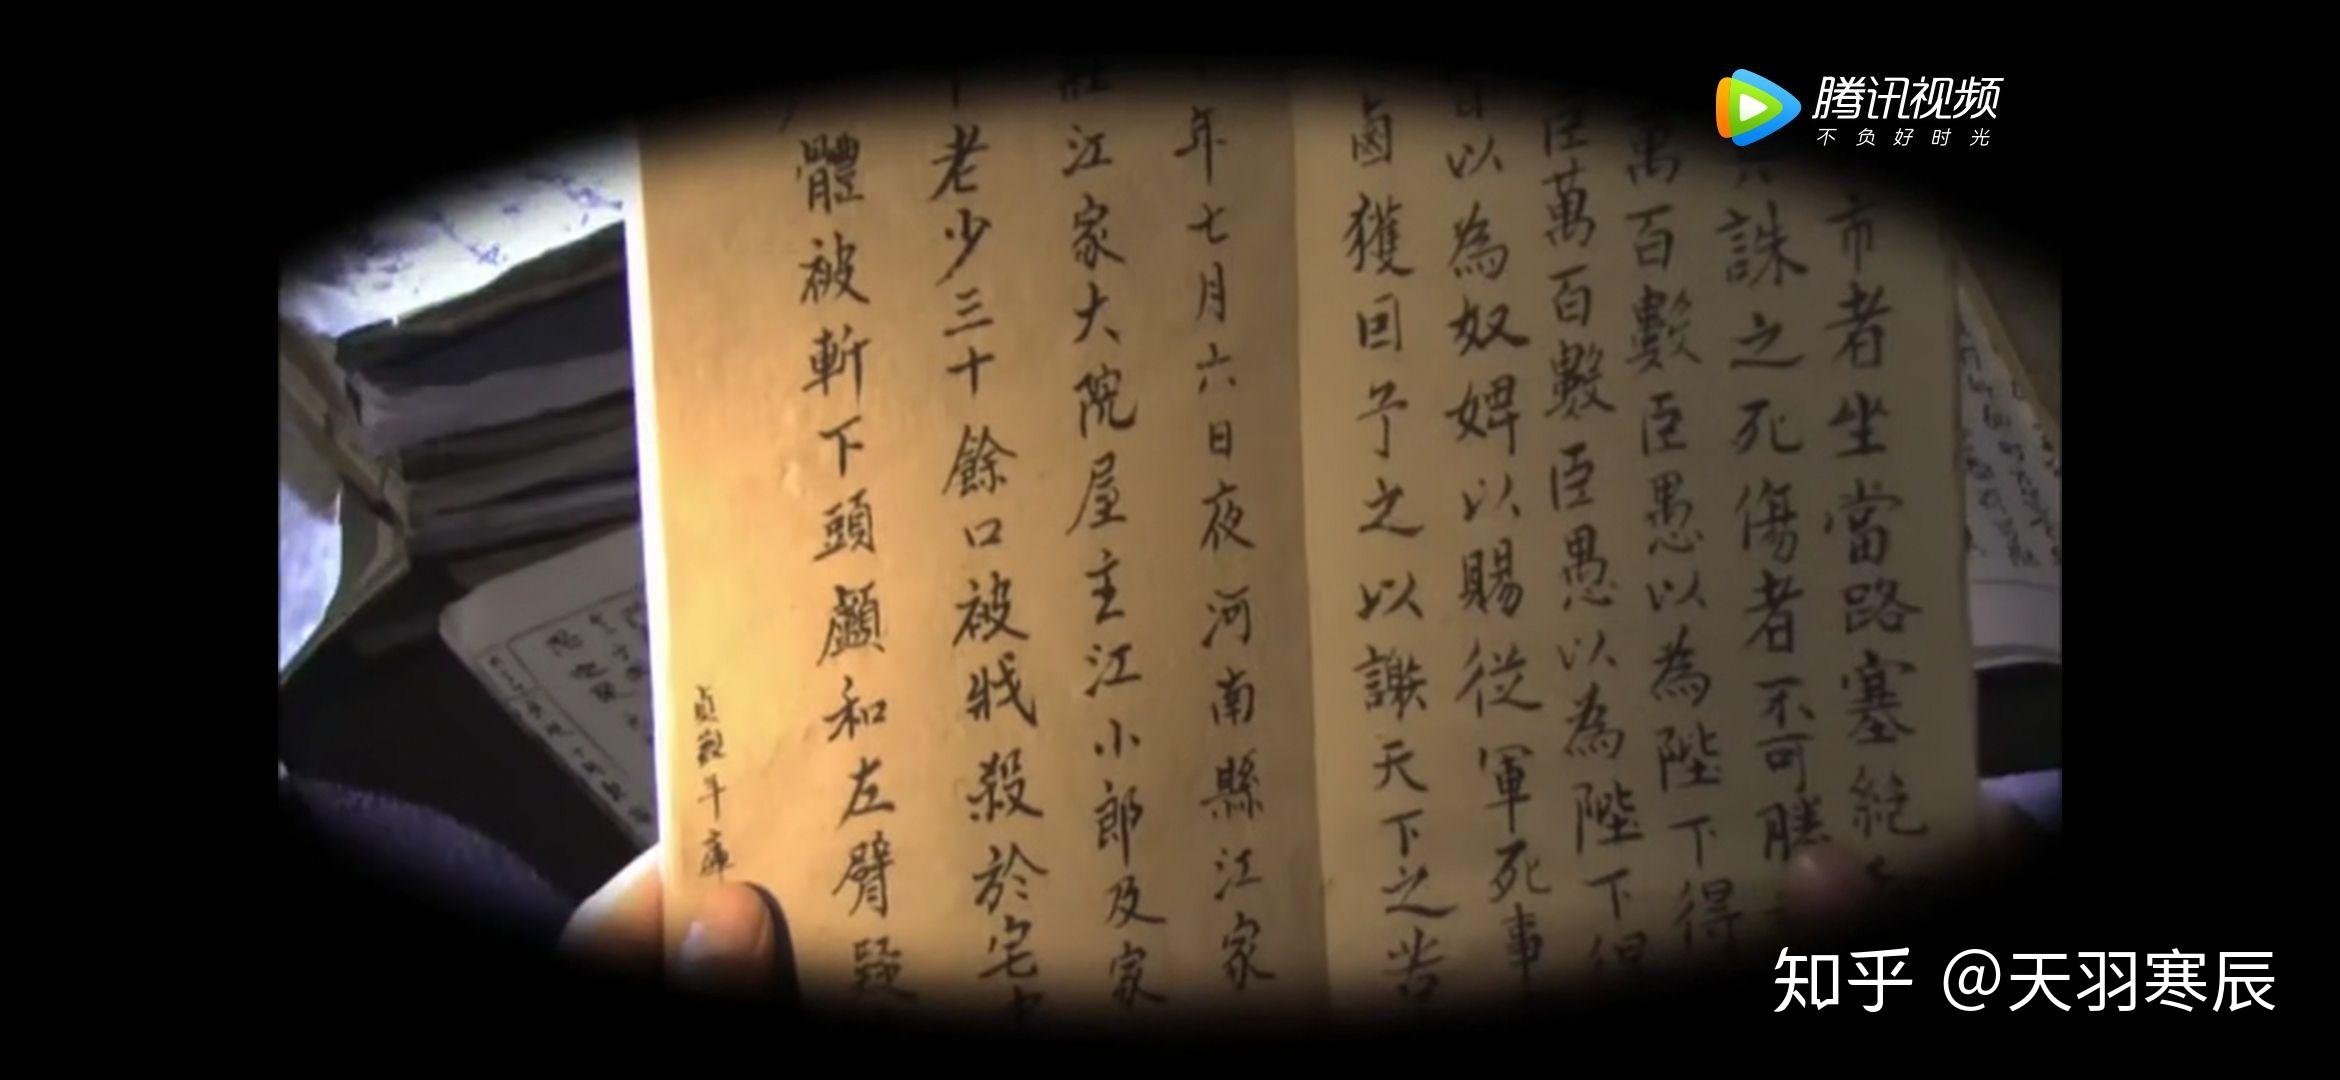 腾讯视频
不负好时光
市者坐當路塞絕
誅之死傷者不可勝
萬百數臣愚以為陛下得
臣萬百數臣愚以為陛下得
以為奴婢以賜從軍死事
鹵獲回予之以謝天下之苦
年七月六日夜河南縣江家
莊江家大院屋主江小郎及家
老少三十餘口被戕殺於宅
體被斬下頭顱和左臂疑
貞觀年庫
知乎 @天羽寒辰